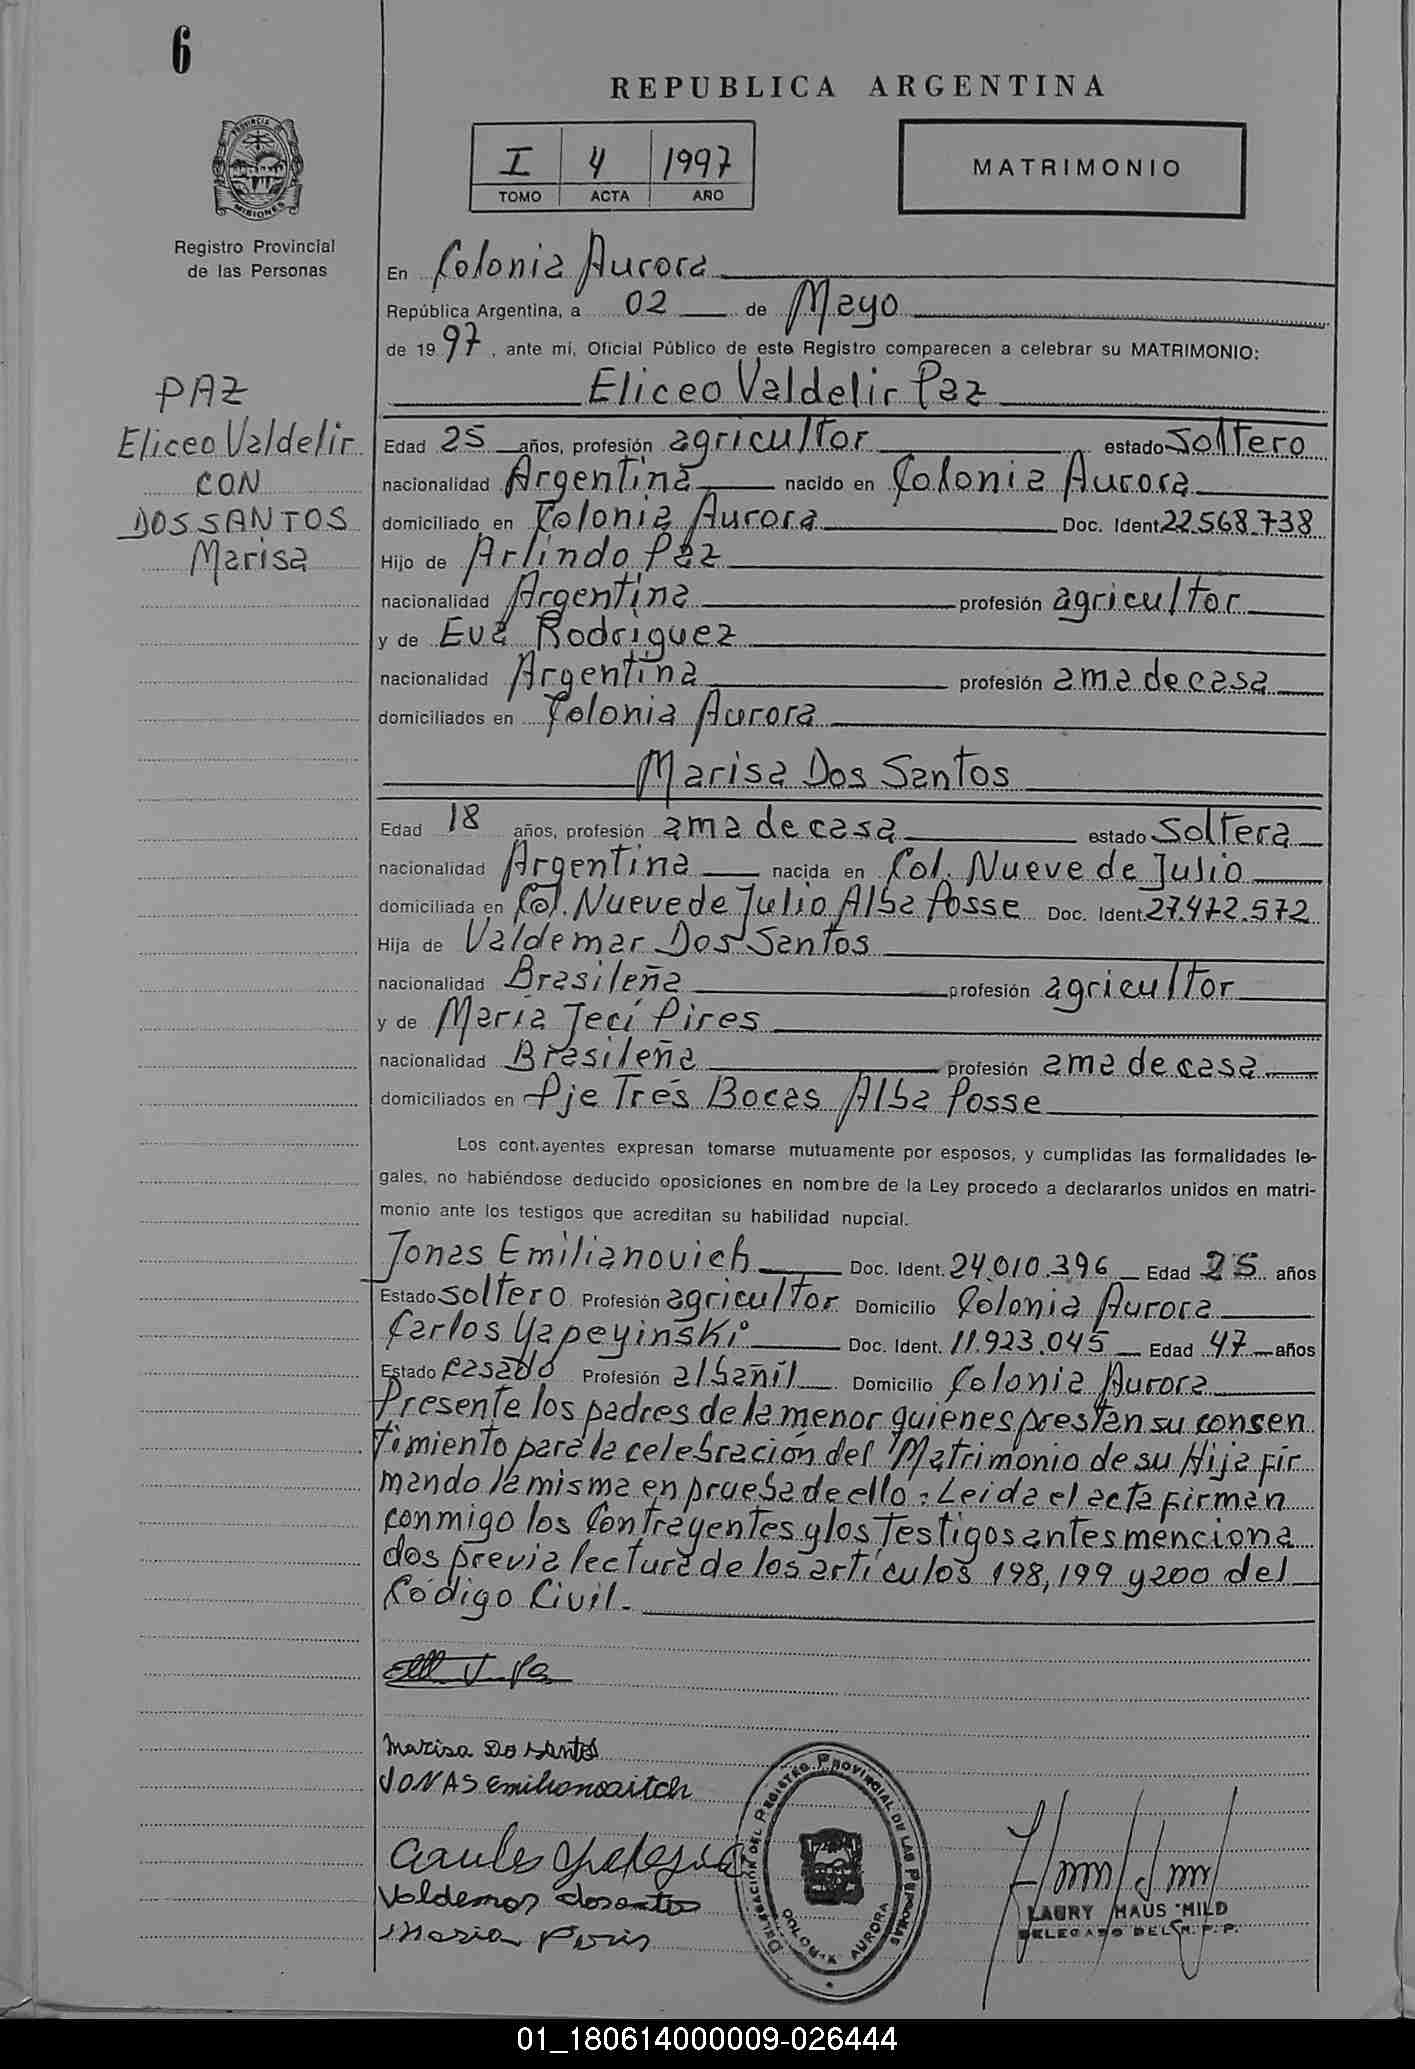 6
REPUBLICA ARGENTINA
I 4 1997
TOMO ACTA AÑO
MATRIMONIO
PROVINCIA DE
MISIONES
Registro Provincial
de las Personas
En Colonia Aurora
República Argentina, a 02 de Mayo
de 1997, ante mí, Oficial Público de este Registro comparecen a celebrar su MATRIMONIO:
PAZ
Eliceo Valdelir
CON
DOS SANTOS
Marisa
Eliceo Valdelir Paz
Edad 25 años, profesión agricultor estado Soltero
nacionalidad Argentina nacido en Colonia Aurora
domiciliado en Colonia Aurora Doc. Ident. 22.568.738
Hijo de Arlindo Paz
nacionalidad Argentina profesión agricultor
y de Eva Rodríguez
nacionalidad Argentina profesión ama de casa
domiciliados en Colonia Aurora
Marisa Dos Santos
Edad 18 años, profesión ama de casa estado Soltera
nacionalidad Argentina nacida en Col. Nueve de Julio
domiciliada en Col. Nueve de Julio Alba Posse Doc. Ident. 27.472.572
Hija de Valdemar Dos Santos
nacionalidad Brasileña profesión agricultor
y de María Jecí Pires
nacionalidad Brasileña profesión ama de casa
domiciliados en Pje Trés Bocas Alba Posse
Los cont.ayentes expresan tomarse mutuamente por esposos, y cumplidas las formalidades le-
gales, no habiéndose deducido oposiciones en nombre de la Ley procedo a declararlos unidos en matri-
monio ante los testigos que acreditan su habilidad nupcial.
Jonas Emilianovich Doc. Ident. 24.010.396 Edad 25 años
Estado Soltero Profesión agricultor Domicilio Colonia Aurora
Carlos Yapeyinski Doc. Ident. 11.923.045 Edad 47 años
Estado Casado Profesión albañíl Domicilio Colonia Aurora
Presente los padres de la menor quienes prestan su consen
timiento para la celebración del Matrimonio de su Hija fir
mando la misma en prueba de ello. Leida el acta firman
conmigo los Contrayentes y los Testigos antes menciona
dos previa lectura de los artículos 198, 199 y 200 del
Código Civil.
Marisa Do santos
JONAS Emilianovitch
Valdemar dosantos
Maria Piris
DELEGACIÓN DEL REGISTRO PROVINCIAL DE LAS PERSONAS
COLONIA AURORA
LAURY HAUS HILD
DELEGADO DEL R. P. P.
01_180614000009-026444